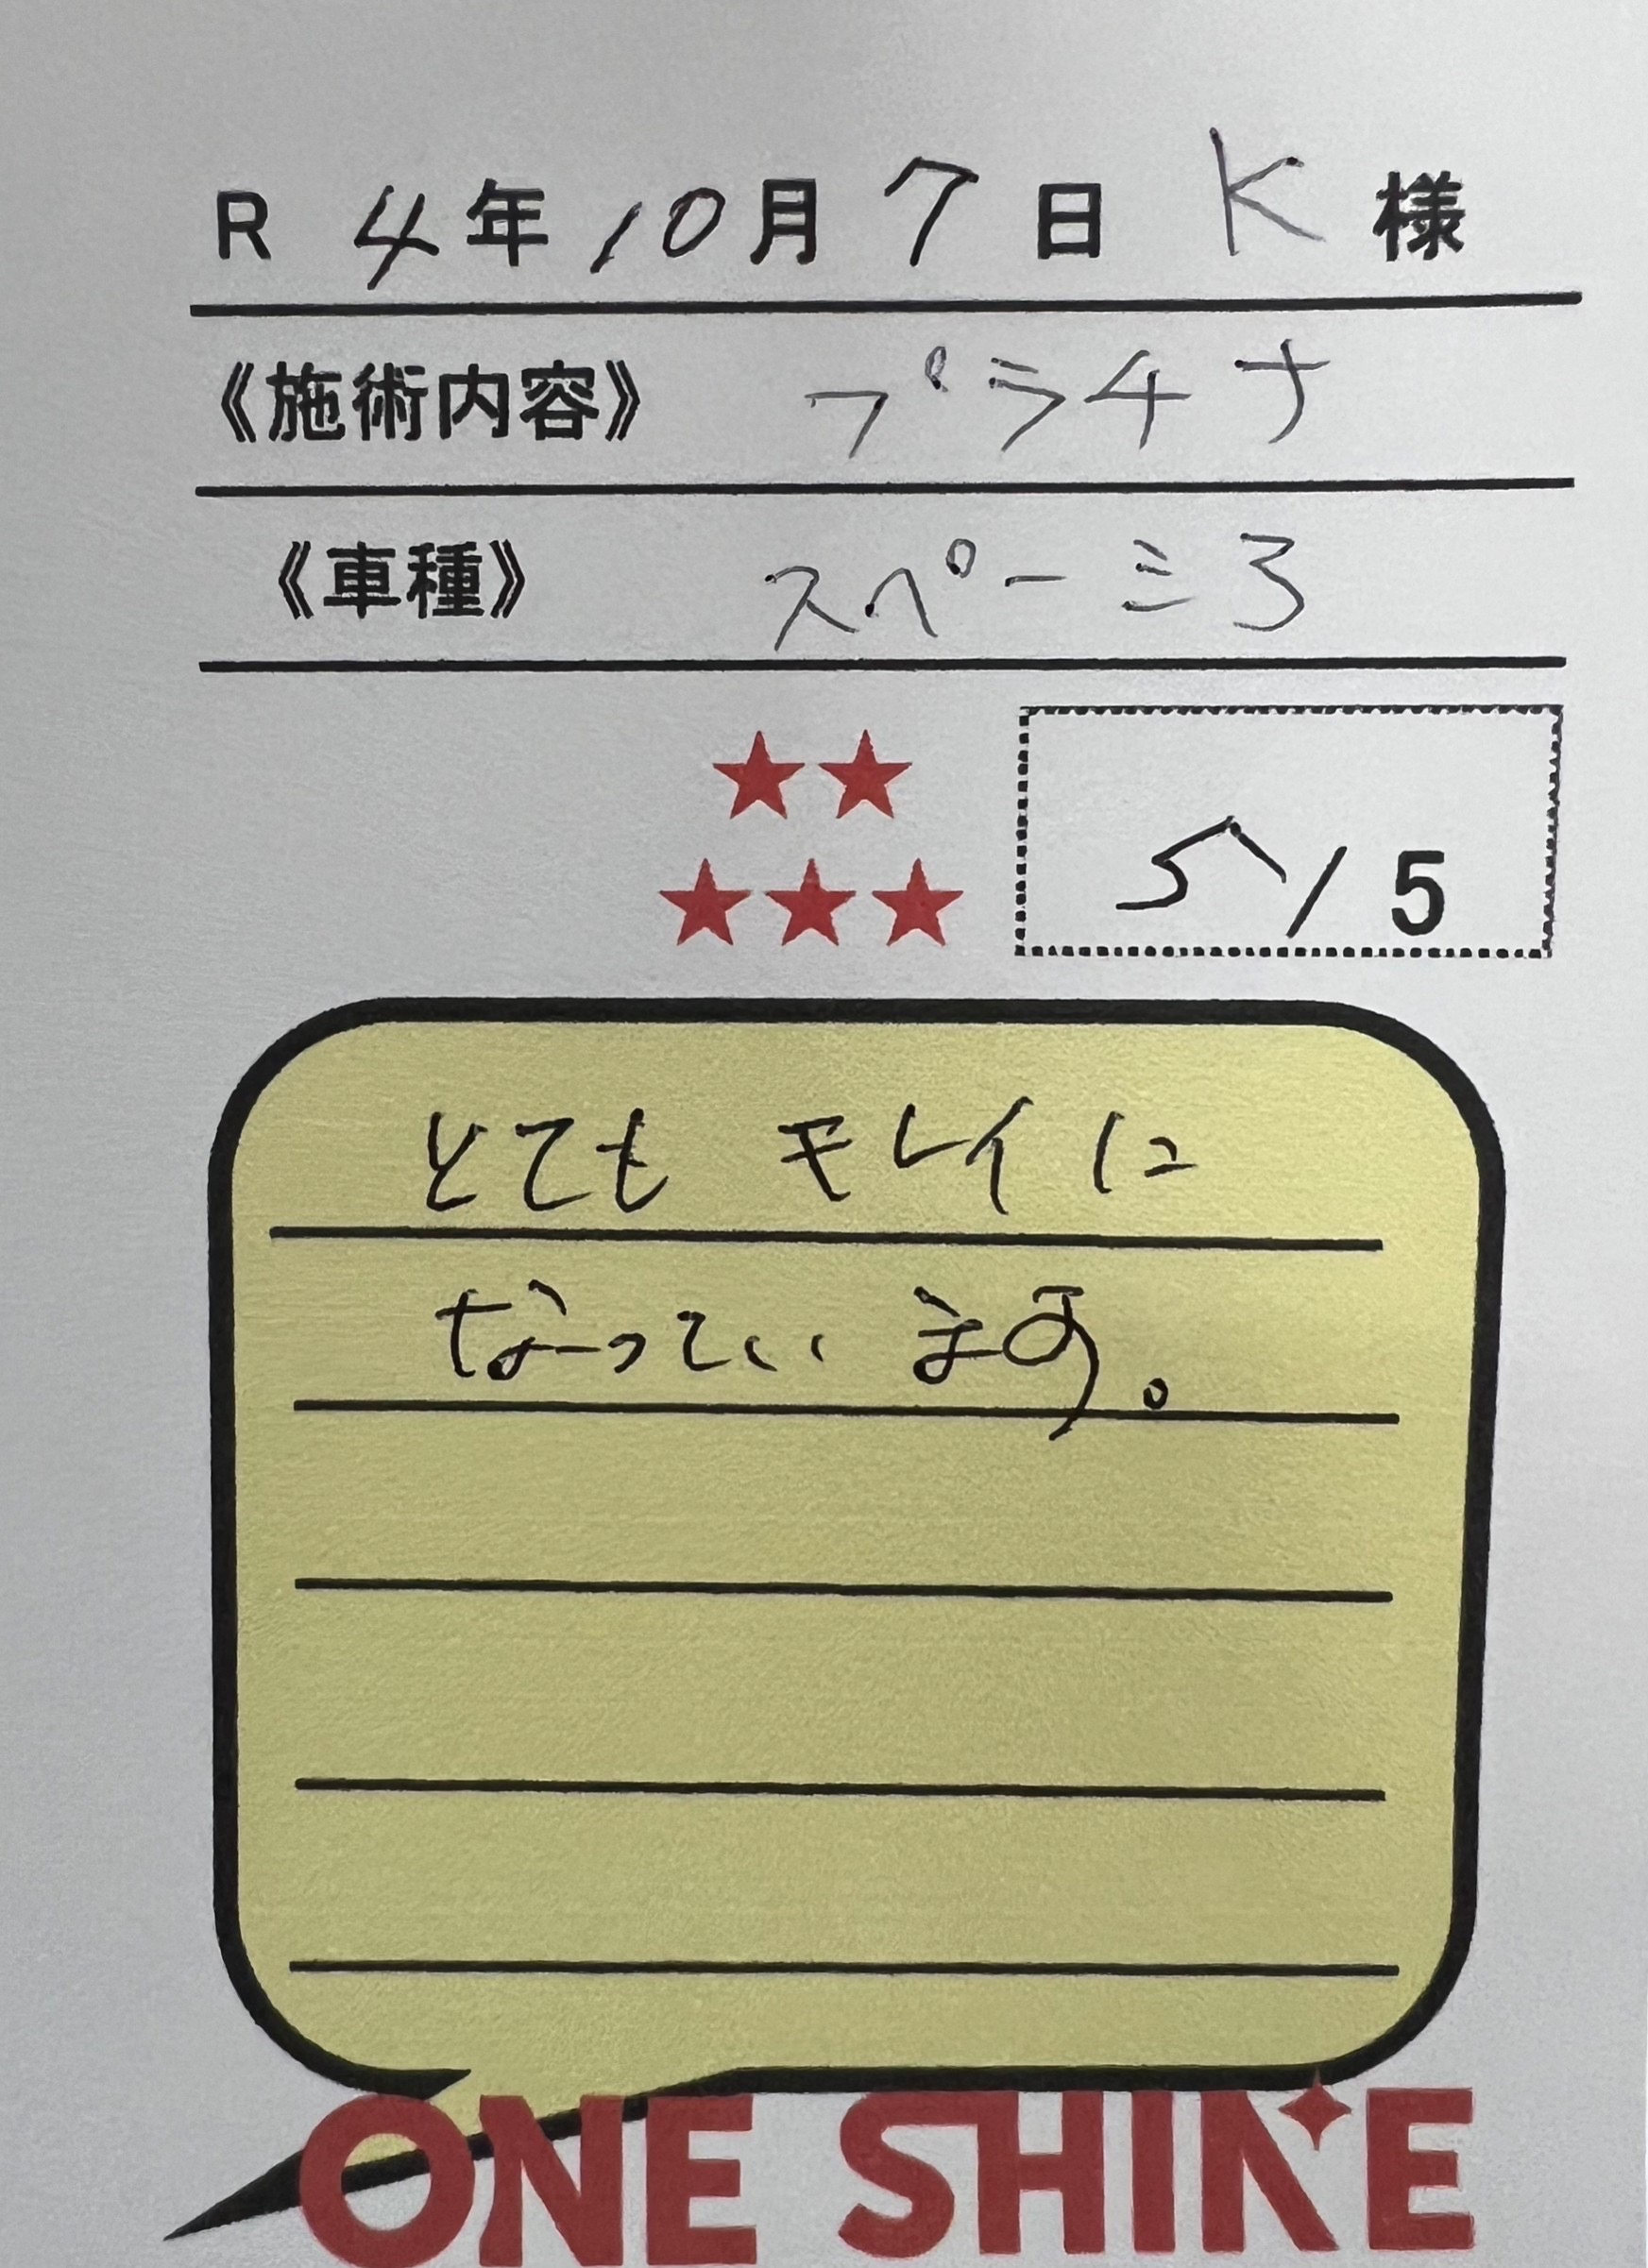 R 4年10月7日 K 様
《施術内容》 プラチナ
《車種》 スペーシア
★★
★★★ 5/5
とても キレイに
なっています。
ONE SHINE